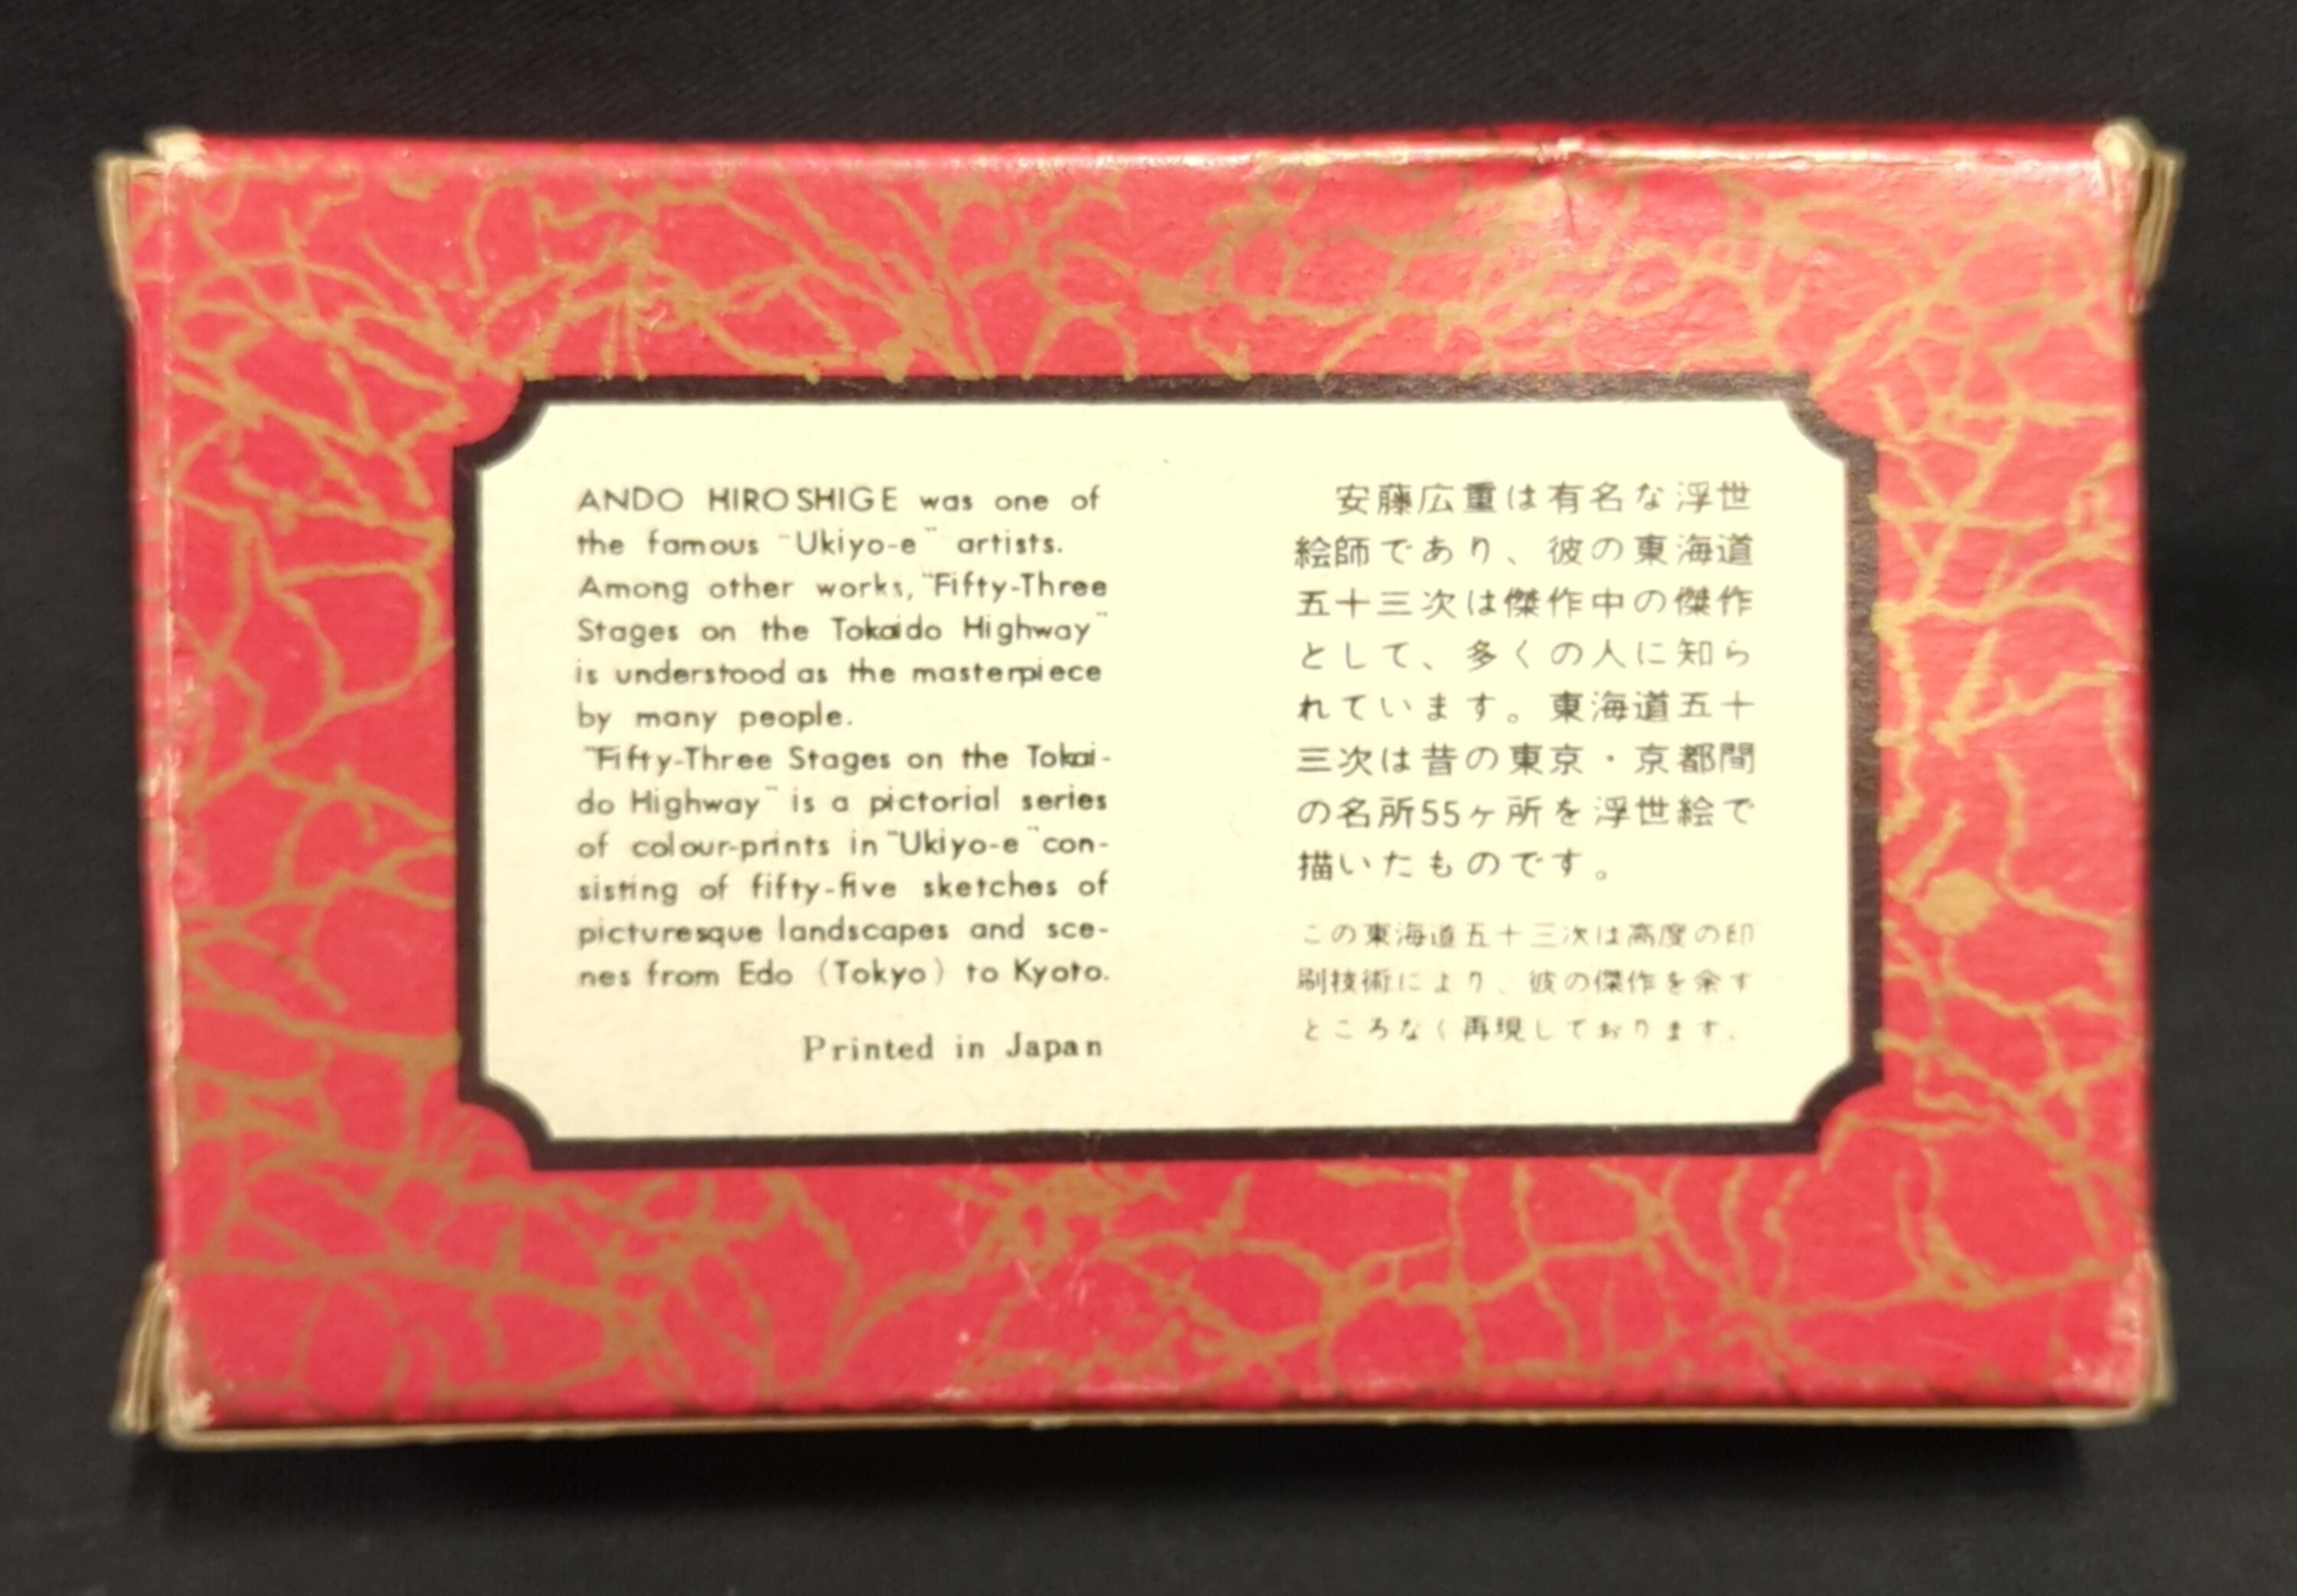 ANDO HIROSHIGE was one of
the famous "Ukiyo-e" artists.
Among other works, "Fifty-Three
Stages on the Tokaido Highway"
is understood as the masterpiece
by many people.
"Fifty-Three Stages on the Tokai-
do Highway" is a pictorial series
of colour-prints in "Ukiyo-e" con-
sisting of fifty-five sketches of
picturesque landscapes and sce-
nes from Edo (Tokyo) to Kyoto.
Printed in Japan
安藤広重は有名な浮世
絵師であり、彼の東海道
五十三次は傑作中の傑作
として、多くの人に知ら
れています。東海道五十
三次は昔の東京・京都間
の名所55ヶ所を浮世絵で
描いたものです。
この東海道五十三次は高度の印
刷技術により、彼の傑作を余す
ところなく再現しております。